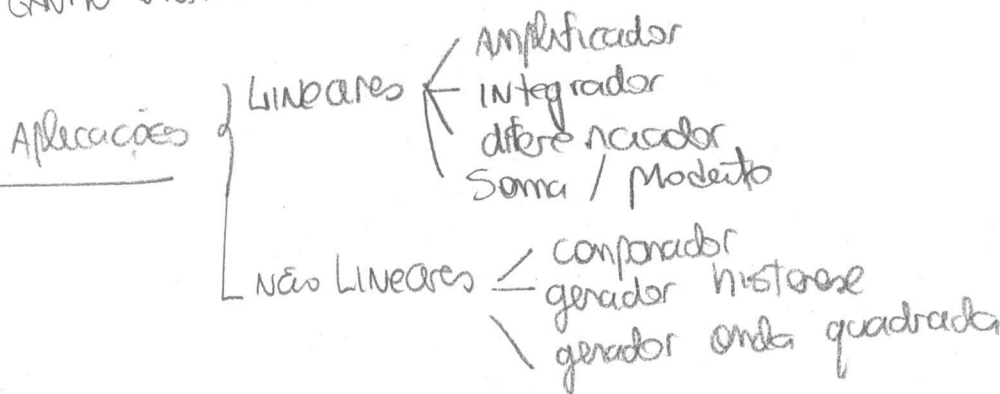 Aplicações
LINEARES
AMplificador
INtegrador
diferenciador
Soma / Produto
NÃO LINEARES
comparador
gerador histerese
gerador onda quadrada